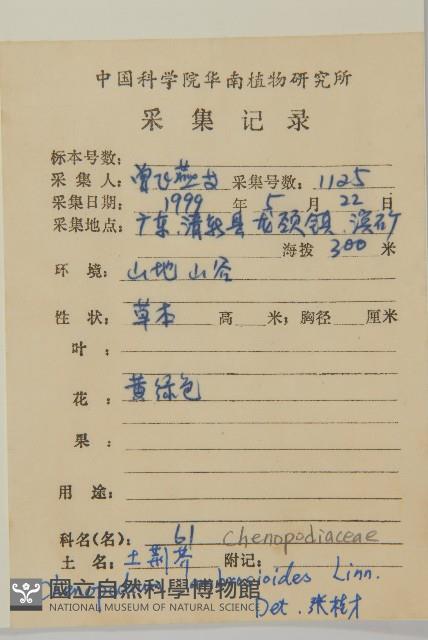 中国科学院华南植物研究所
采集记录
标本号数:
采集人: 曾飞燕 采集号数: 1125
采集日期: 1999 年 5 月 22 日
采集地点: 广东. 清新县 龙颈镇.
海拨 300 米
环境: 山地 山谷
性状: 草本 高 米; 胸径 厘米
叶:
花: 黄绿色
果:
用途:
科名(名): 61 Chenopodiaceae
土名: 土荆芥 附记:
Chenopodium ambrosioides Linn.
國立自然科學博物館
NATIONAL MUSEUM OF NATURAL SCIENCE
Det. 张桂才